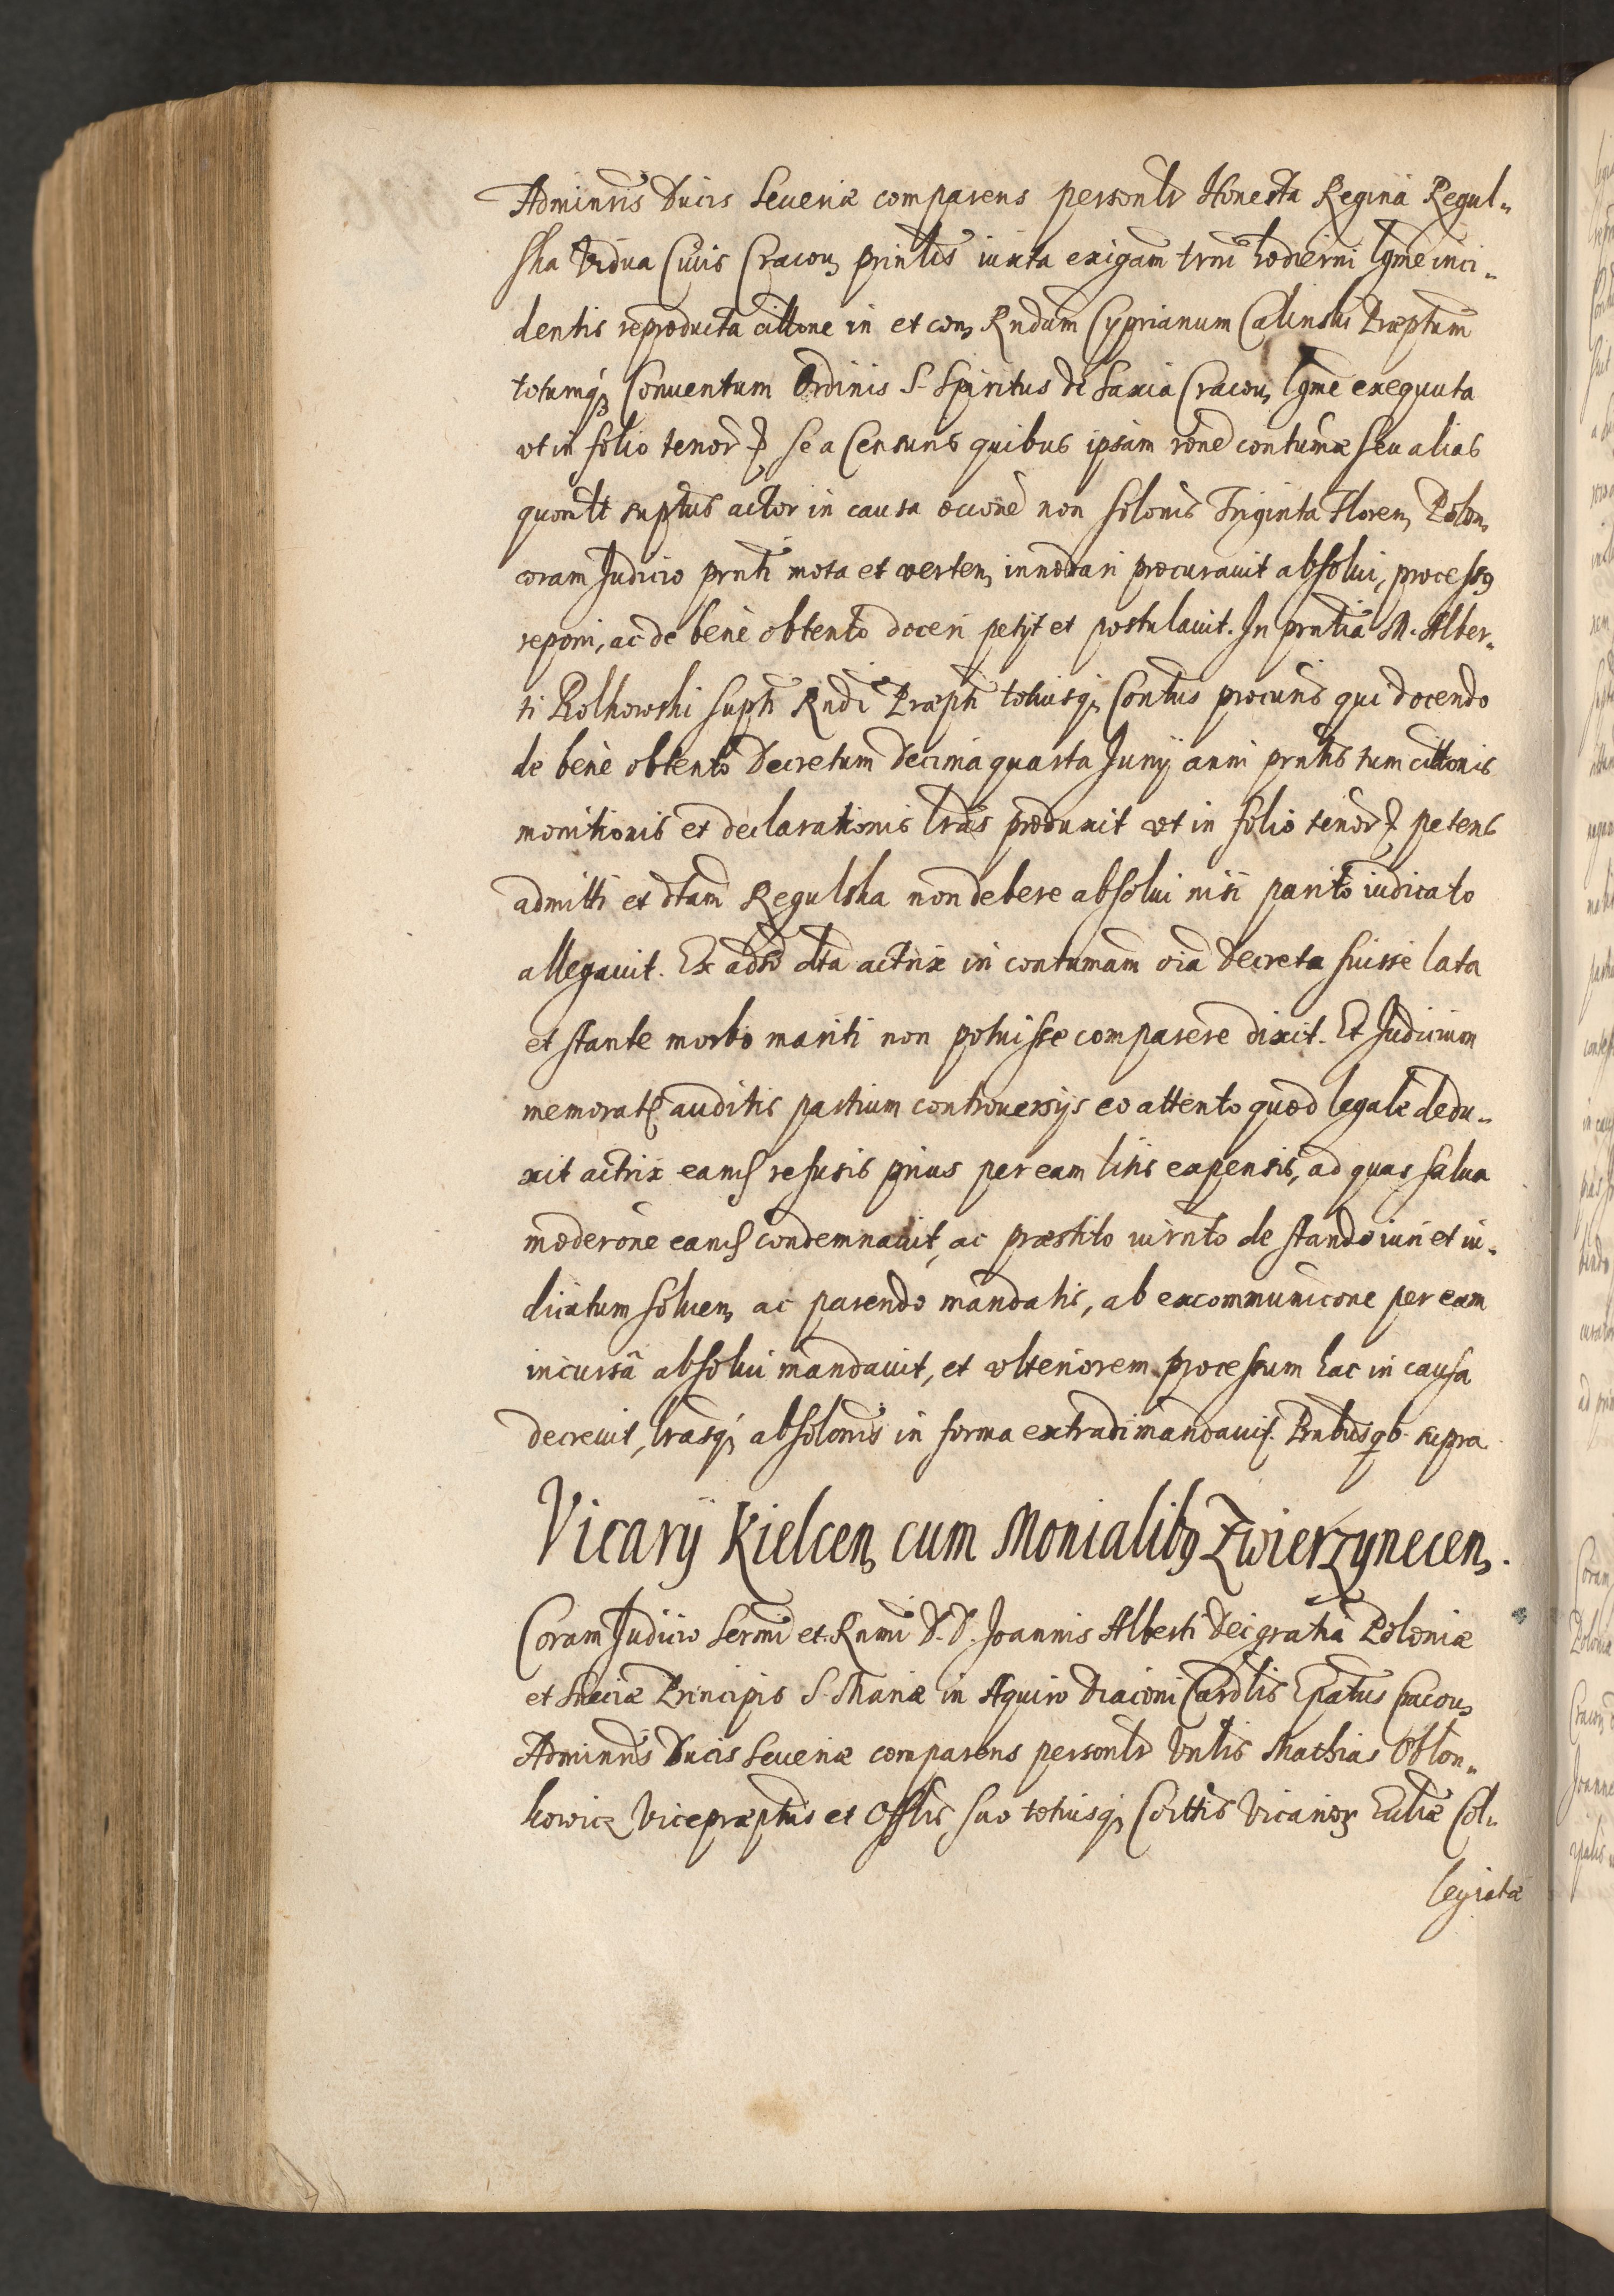 Adminrīs Ducis Seueriæ comparens personlr Honesta Regina Regul„
ska Vidua Ciuis Cracou, prinlis iuxta exigam trni hodierni lgme inci„
dentis reproducta cittone in et con, Rndum Cyprianum Calinski Præptum
totumq, Conuentum Ordinis S. Spiritus de Saxia Cracou, lgme exequuta
vt in folio tenor, se a Censuris quibus ipsam rone contumæ seu alias
quomlt suptus actor in causa occone non solonis Triginta Floren, Polon,
coram Judicio prnti mota et verten, innodari procurauit absolui, processq
reponi, ac de bene obtento doceri petyt et postulauit. In prntia M. Alber„
ti Rolkowski supti Rndi Præpti totiusq, Contus procuris qui docendo
de bene obtento Decretum decima quarta Junij anni prntis tum cittonis
monitionis et declarationis lras produxit vt in folio tenor, petens
admitti et dtam Regulska non debere absolui nisi parito iudicato
allegauit. Ex adso dta actrix in contumam oia decreta fuisse lata
et stante morbo mariti non potuisse comparere dixit. Et Judicium
memorat, auditis partium controuersijs eo attento quod legale dedu„
xit actrix eand refusis prius per eam litis expensis, ad quas salua
moderone eand condemnauit, ac præstito iurnto de stando iuri et iu„
dicatum soluen, ac parendo mandatis, ab excommunicone per eam
incursa absolui mandauit, et vlteriorem processum hac in causa
decreuit, lrasq, absolonis in forma extradi mandauit. Prntibus qb supra
Vicarij Kielcen, cum Monialibq Zwierzynecen,.
Coram Judicio Sermi et Rnmi D. D. Joannis Alberti Dei gratia Poloniæ
et Sueciæ Principis S. Mariæ in Aquiro Diaconi Cardlis Epatus Cracou,
Adminris Ducis Seueriæ comparens personlr Vnlis Mathias Obłon„
kowicz Vicepræptus et Offlis suo totiusq, Coittis Vicarior, Eccliæ Col„
legiatæ